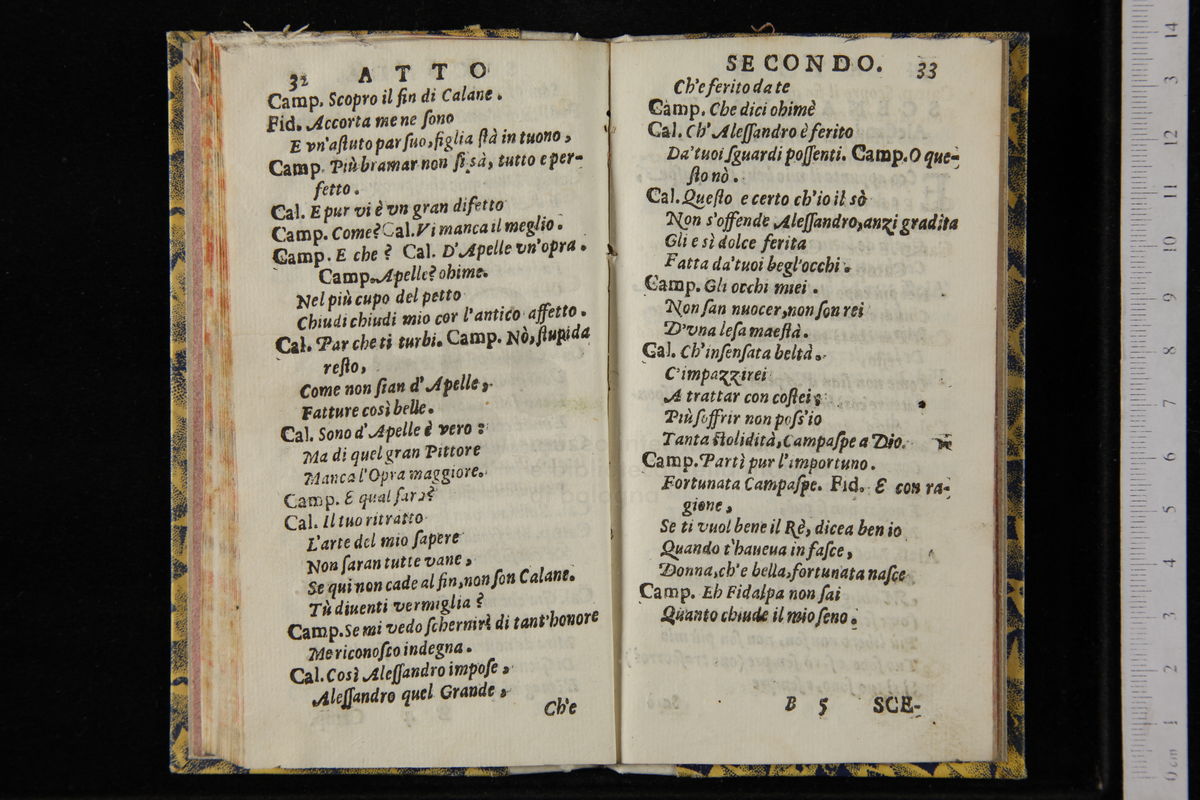 32 ATTO
Camp. Scopro il fin di Calane.
Fid. Accorta me ne ſono
E vn'aſtuto par ſuo, figlia ſtà in tuono,
Camp. Più bramar non ſi sà, tutto e per-
fetto.
Cal. E pur vi è vn gran difetto
Camp. Come? Cal. Vi manca il meglio.
Camp. E che? Cal. D'Apelle vn'opra.
Camp. Apelle? ohime.
Nel più cupo del petto
Chiudi chiudi mio cor l'antico affetto.
Cal. Par che ti turbi. Camp. Nò, ſtupida
reſto,
Come non ſian d'Apelle,
Fatture così belle.
Cal. Sono d'Apelle è vero:
Ma di quel gran Pittore
Manca l'Opra maggiore.
Camp. E qual ſara?
Cal. Il tuo ritratto
L'arte del mio ſapere
Non ſaran tutte vane,
Se qui non cade al fin, non ſon Calane.
Tù diuenti vermiglia?
Camp. Se mi vedo ſchernirì di tant'honore
Me riconoſco indegna.
Cal. Così Aleſſandro impoſe,
Aleſſandro quel Grande,
Ch'e
SECONDO. 33
Ch'e ferito da te
Camp. Che dici ohimè
Cal. Ch'Aleſſandro è ferito
Da'tuoi ſguardi poſſenti. Camp. O que-
ſto nò.
Cal. Queſto e certo ch'io il sò
Non s'offende Aleſſandro, anzi gradita
Gli e sì dolce ferita
Fatta da'tuoi begl'occhi.
Camp. Gli occhi miei.
Non ſan nuocer, non ſon rei
D'vna leſa maeſtà.
Cal. Ch'inſenſata beltà.
C'impazzirei
A trattar con coſtei;
Più ſoffrir non poſs'io
Tanta ſtolidità, Campaſpe a Dio.
Camp. Partì pur l'importuno.
Fortunata Campaſpe. Fid. E con ra-
gione,
Se ti vuol bene il Rè, dicea ben io
Quando t'haueua in faſce,
Donna, ch'e bella, fortunata naſce
Camp. Eh Fidalpa non ſai
Quanto chiude il mio ſeno.
B 5 SCE-